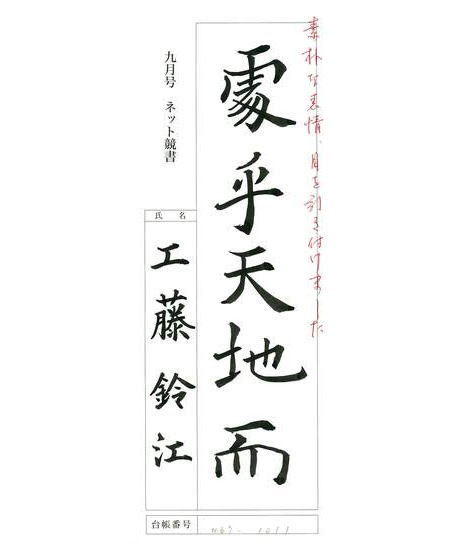 素朴な表情、目を引き付けました
處乎天地而
九月号 ネット競書
氏 名
工藤鈴江
台帳番号
1011